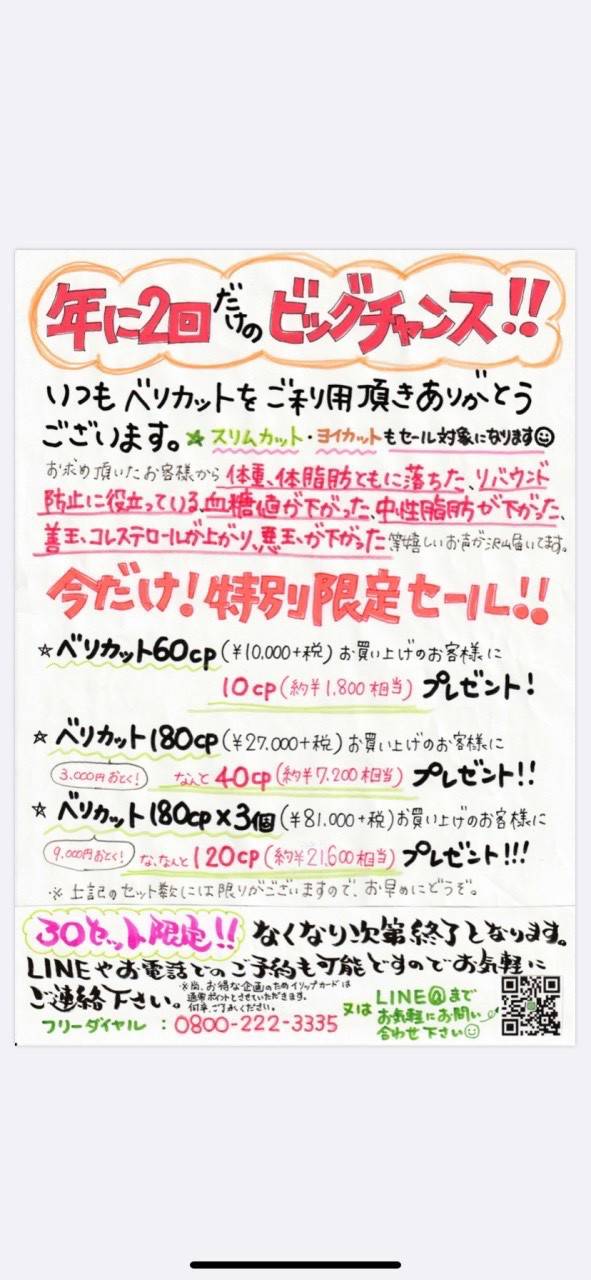 年に2回だけのビッグチャンス!!
いつもベリカットをご利用頂きありがとう
ございます。★スリムカット・ヨイカットもセール対象になります
お求め頂いたお客様から体重、体脂肪ともに落ちた、リバウンド
防止に役立っている、血糖値が下がった、中性脂肪が下がった、
善玉、コレステロールが上がり、悪玉、が下がった等嬉しいお声が沢山届いてます。
今だけ!特別限定セール!!
☆ベリカット60cp(¥10.000+税)お買い上げのお客様に
10cp(約¥1.800相当)プレゼント!
☆ベリカット180cp(¥27.000+税)お買い上げのお客様に
3.000円おとく! なんと40cp(約¥7.200相当)プレゼント!!
☆ベリカット180cp×3個(¥81.000+税)お買い上げのお客様に
9,000円おとく! な、なんと120cp(約¥21,600相当)プレゼント!!!
※上記のセット数には限りがございますので、お早めにどうぞ。
30セット限定!! なくなり次第終了となります。
LINEやお電話でのご予約も可能ですのでお気軽に
ご連絡下さい。
※尚、お得な企画のためイリップカードは
通常ポイントとさせていただきます。
何卒、ご了承ください。
フリーダイヤル:0800-222-3335
又は
LINE@まで
お気軽にお問い
合わせ下さい